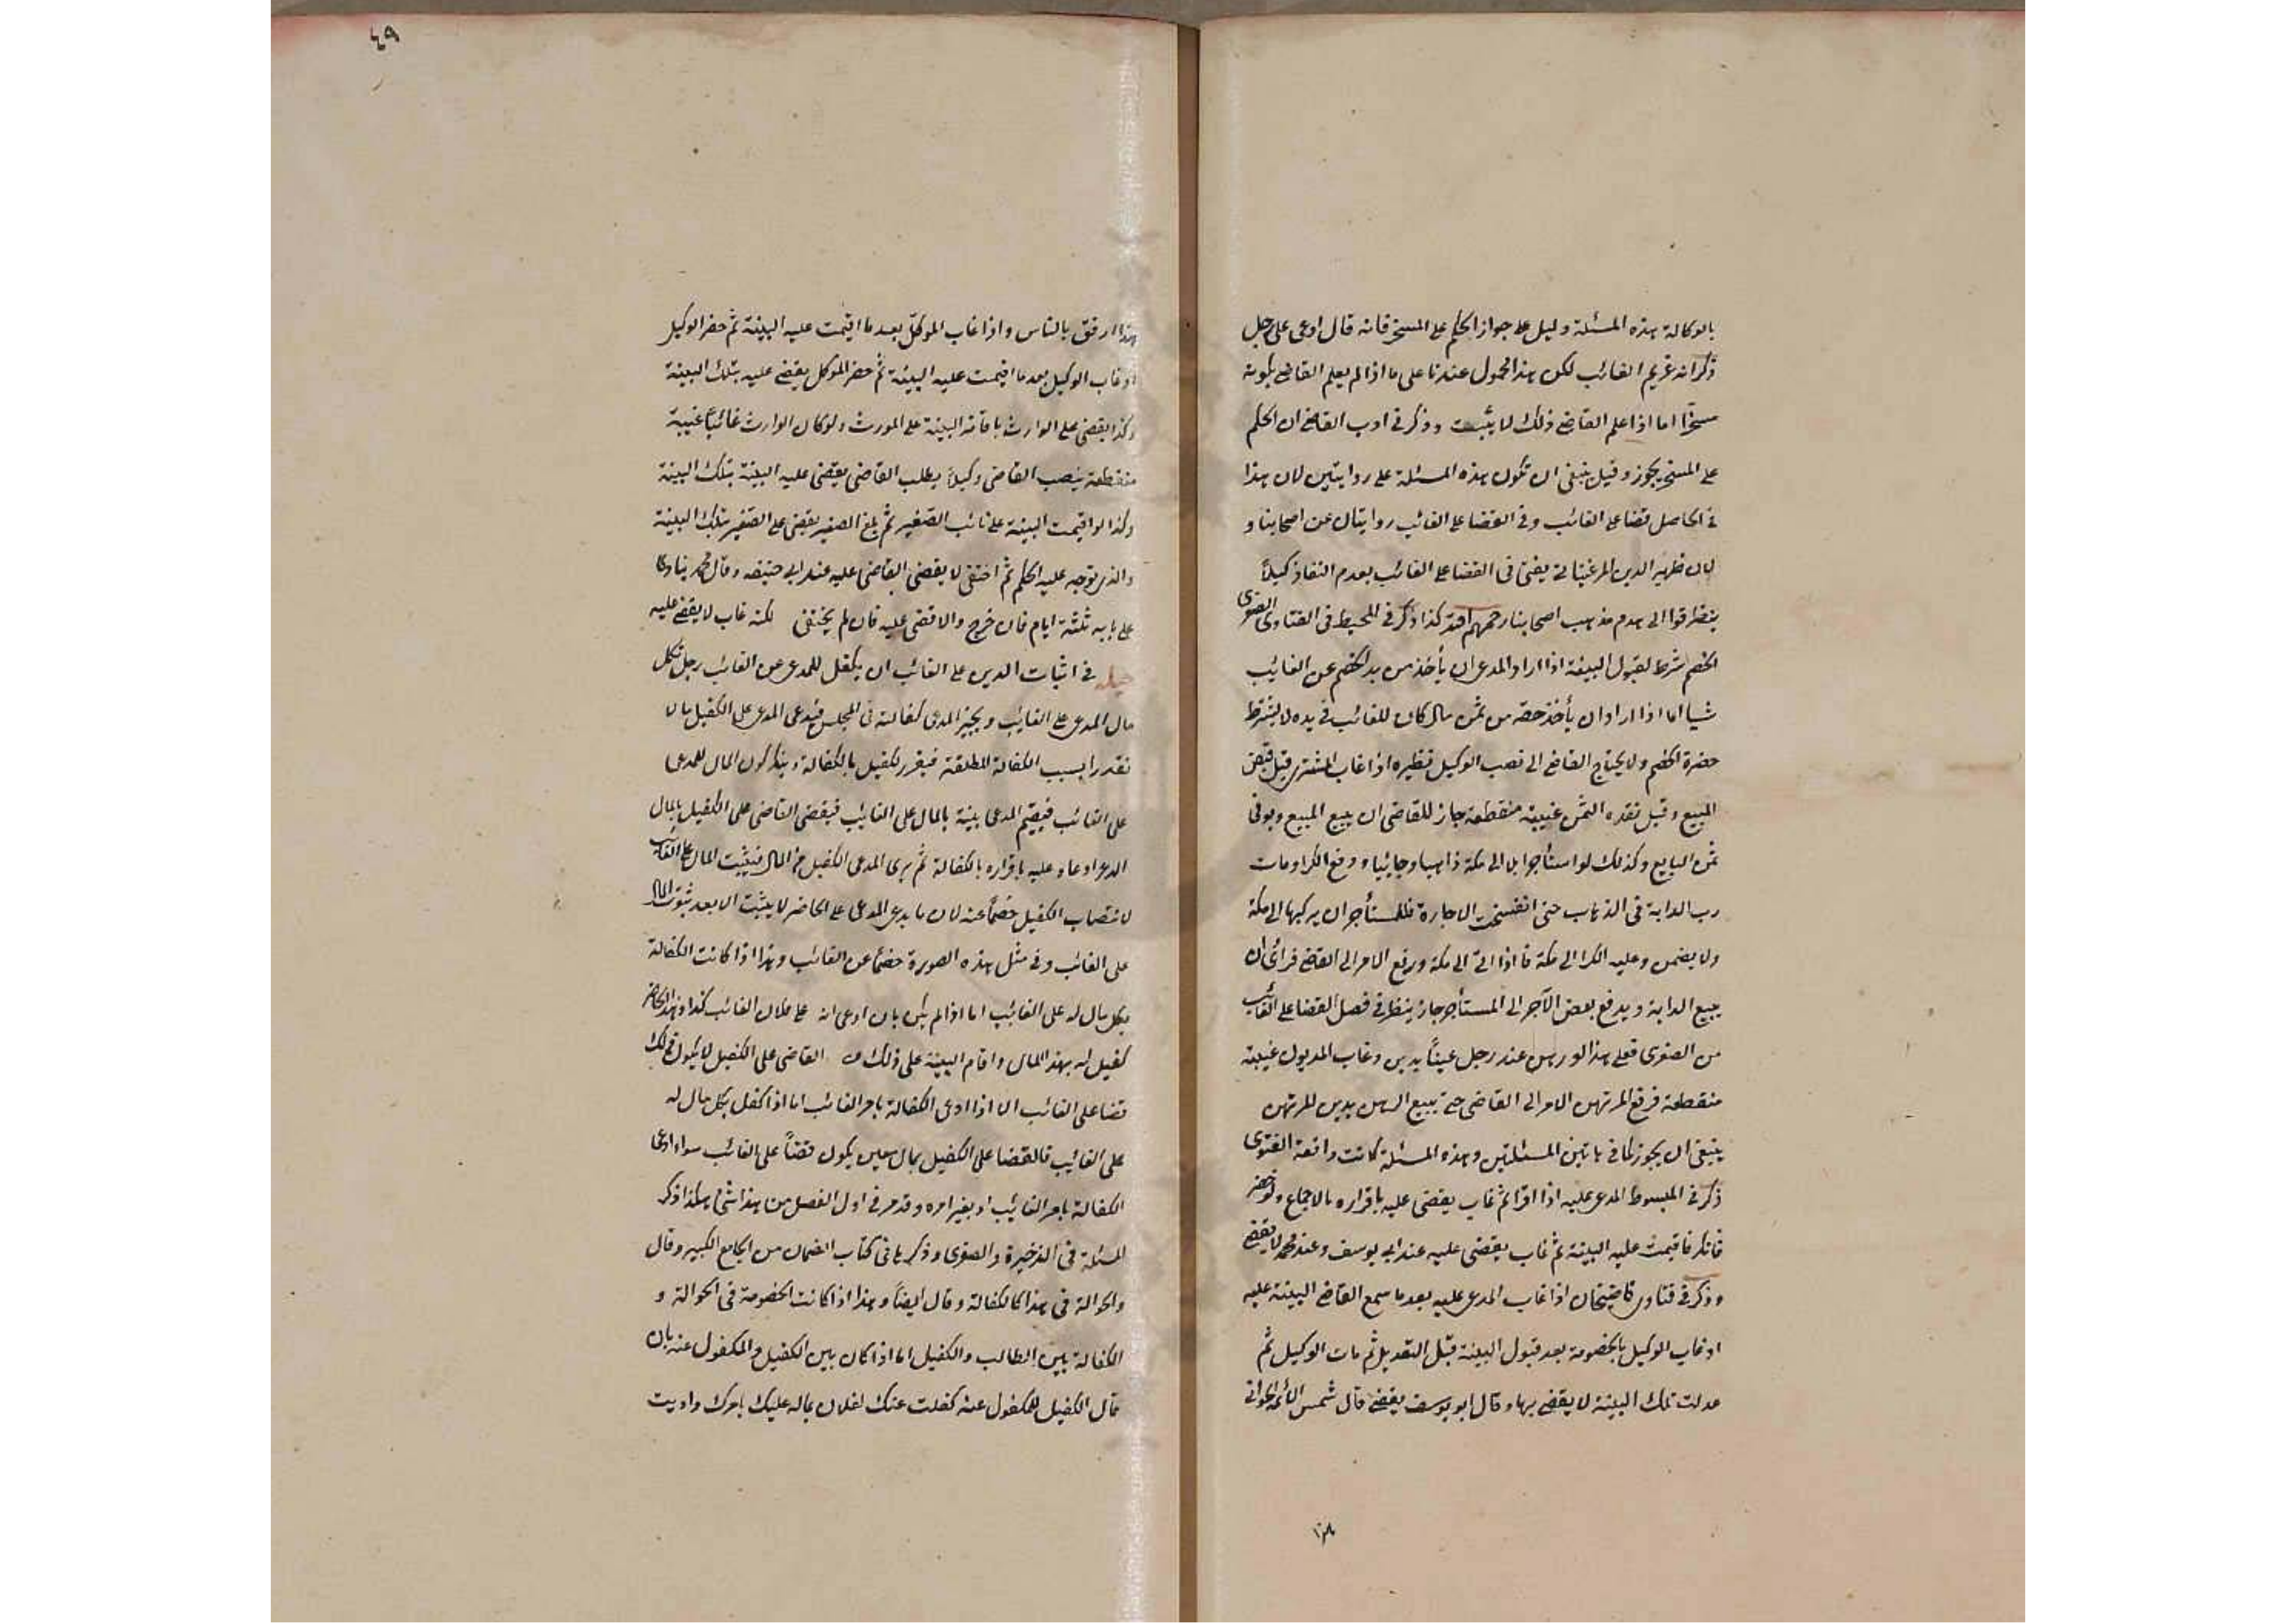 بالوكالة هذه المسئلة دليل على جواز الحكم على المسخر فانه قال ادعى على رجل
ذكر انه غريم الغائب لكن هذا محمول عندنا على ما اذا لم يعلم القاضى بكونه
مسخرًا اما اذا علم القاضى ذلك لا يثبت وذكر فى ادب القاضى ان الحكم
على المسخر يجوز وقيل ينبغى ان تكون هذه المسئلة على روايتين لان هذا
فى الحاصل قضا على الغائب وفى القضا على الغائب روايتان عن اصحابنا و
كان ظهير الدين المرغينانى يفتى فى القضا على الغائب بعدم النفاذ كيلًا
يتطرقوا الى هدم مذهب اصحابنا رحمهم الله كذا ذكر فى المحيط فى الفتاوى الصغرى
الخصم شرط لقبول البينة اذا اراد المدعى ان يأخذ من يد الخصم عن الغائب
شيا اما اذا اراد ان يأخذ حقه من ثمن مال كان للغائب فى يده لا يشترط
حضرة الخصم ولا يحتاج القاضى الى نصب الوكيل نظيره اذا غاب المشترى قبل قبض
المبيع وقبل نقده الثمن غيبة منقطعة جاز للقاضى ان يبيع المبيع ويوفى
ثمن البايع وكذلك لو استأجر ابل الى مكة ذاهبا وجائيا ودفع الكرا ومات
رب الدابة فى الذهاب حتى انفسخت الاجارة فللمستأجر ان يركبها الى مكة
ولا يضمن وعليه الكرا الى مكة فاذا اتى الى مكة ورفع الامر الى القاضى فرأى ان
يبيع الدابة ويدفع بعض الآجر الى المستأجر جاز ينظر فى فصل القضا على الغائب
من الصغرى فعلى هذا لو رهن عند رجل عينًا بدين وغاب المديون غيبة
منقطعة فرفع المرتهن الامر الى القاضى حتى يبيع الرهن بدين للمرتهن
ينبغى ان يجوز كما فى هاتين المسئلتين وهذه المسئلة كانت واقعة الفتوى
ذكر فى المبسوط المدعى عليه اذا اقر ثم غاب يقضى عليه باقراره بالاجماع ولو حضر
فانكر فاقيمت عليه البينة ثم غاب يقضى عليه عند ابى يوسف وعند محمد لا يقضى
وذكر فى فتاوى قاضيخان اذا غاب المدعى عليه بعد ما سمع القاضى البينة عليه
او غاب الوكيل بالخصومة بعد قبول البينة قبل التعديل ثم مات الوكيل ثم
عدلت تلك البينة لا يقضى بها وقال ابو يوسف يقضى قال شمس الأئمة الحلوانى
هذا
٤٩
هذا ارفق بالناس واذا غاب الموكل بعد ما اقيمت عليه البينة ثم حضر الوكيل
او غاب الوكيل بعد ما اقيمت عليه البينة ثم حضر الموكل يقضى عليه بتلك البينة
وكذا يقضى على الوارث باقامة البينة على المورث ولو كان الوارث غائبًا غيبة
منقطعة ينصب القاضى وكيلًا بطلب القاضى يقضى عليه البينة بتلك البينة
وكذا لو اقيمت البينة على نائب الصغير ثم بلغ الصغير يقضى على الصغير بتلك البينة
والذى توجه عليه الحكم ثم اختفى لا يقضى القاضى عليه عند ابى حنيفه وقال محمد ينادى
على بابه ثلثة ايام فان خرج والا قضى عليه فان لم يختفى لكنه غاب لا يقضى عليه
حيلة فى اثبات الدين على الغائب ان يكفل للمدعى عن الغائب رجل بكل
مال المدعى على الغائب ويجيز المدعى كفالته فى المجلس فيدعى المدعى على الكفيل مالا
نقدرا بسبب الكفالة المطلقة فيقرر لكفيل بالكفالة وينكر كون المال للمدعى
على الغائب فيقيم المدعى بينة بالمال على الغائب فيقضى القاضى على الكفيل بالمال
الدعى ادعاه عليه باقراره بالكفالة ثم يبرى المدعى الكفيل من المال فيثبت المال على الغائب
لانتصاب الكفيل خصمًا عنه لان ما يدعى المدعى على الحاضر لا يثبت الا بعد ثبوت المال
على الغائب وفى مثل هذه الصورة خصمًا عن الغائب وهذا اذا كانت الكفالة
بكل مال له على الغائب اما اذا لم يكن بان ادعى انه على فلان الغائب كذا وهذا الحاضر
كفيل له بهذا المال واقام البينة على ذلك القاضى على الكفيل لا يكون ذلك
قضا على الغائب الا اذا ادعى الكفالة بامر الغائب اما اذا كفل بكل مال له
على الغائب فالقضا على الكفيل بمال معين يكون قضًا على الغائب سواء ادعى
الكفالة بامر الغائب او بغير امره وقد مر فى اول الفصل من هذا شئ هكذا ذكر
المسئلة فى الذخيرة والصغرى وذكرها فى كتاب الضمان من الجامع الكبير وقال
والحوالة فى هذا كالكفالة وقال ايضًا وهذا اذا كانت الخصومة فى الحوالة و
الكفالة بين الطالب والكفيل اما اذا كان بين الكفيل والمكفول عنه بان
قال الكفيل للمكفول عنه كفلت عنك لفلان بماله عليك بامرك واديت